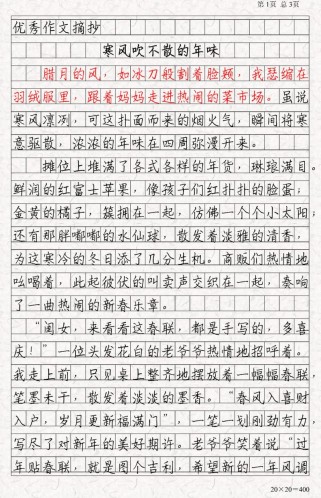 第1页 总3页
优秀作文摘抄
寒风吹不散的年味
腊月的风，如冰刀般割着脸颊，我瑟缩在
羽绒服里，跟着妈妈走进热闹的菜市场。虽说
寒风凛冽，可这扑面而来的烟火气，瞬间将寒
意驱散，浓浓的年味在四周弥漫开来。
摊位上堆满了各式各样的年货，琳琅满目。
鲜润的红富士苹果，像孩子们红扑扑的脸蛋；
金黄的橘子，簇拥在一起，仿佛一个个小太阳；
还有那胖嘟嘟的水仙球，散发着淡雅的清香，
为这寒冷的冬日添了几分生机。商贩们热情地
吆喝着，此起彼伏的叫卖声交织在一起，奏响
了一曲热闹的新春乐章。
“闺女，来看看这春联，都是手写的，多喜
庆！”一位头发花白的老爷爷热情地招呼着。
我走上前，只见桌上整齐地摆放着一幅幅春联，
笔墨未干，散发着淡淡的墨香。“春风入喜财
入户，岁月更新福满门”，一笔一划刚劲有力，
写尽了对新年的美好期许。老爷爷笑着说“过
年贴春联，就是图个吉利，希望新的一年风调
20×20=400